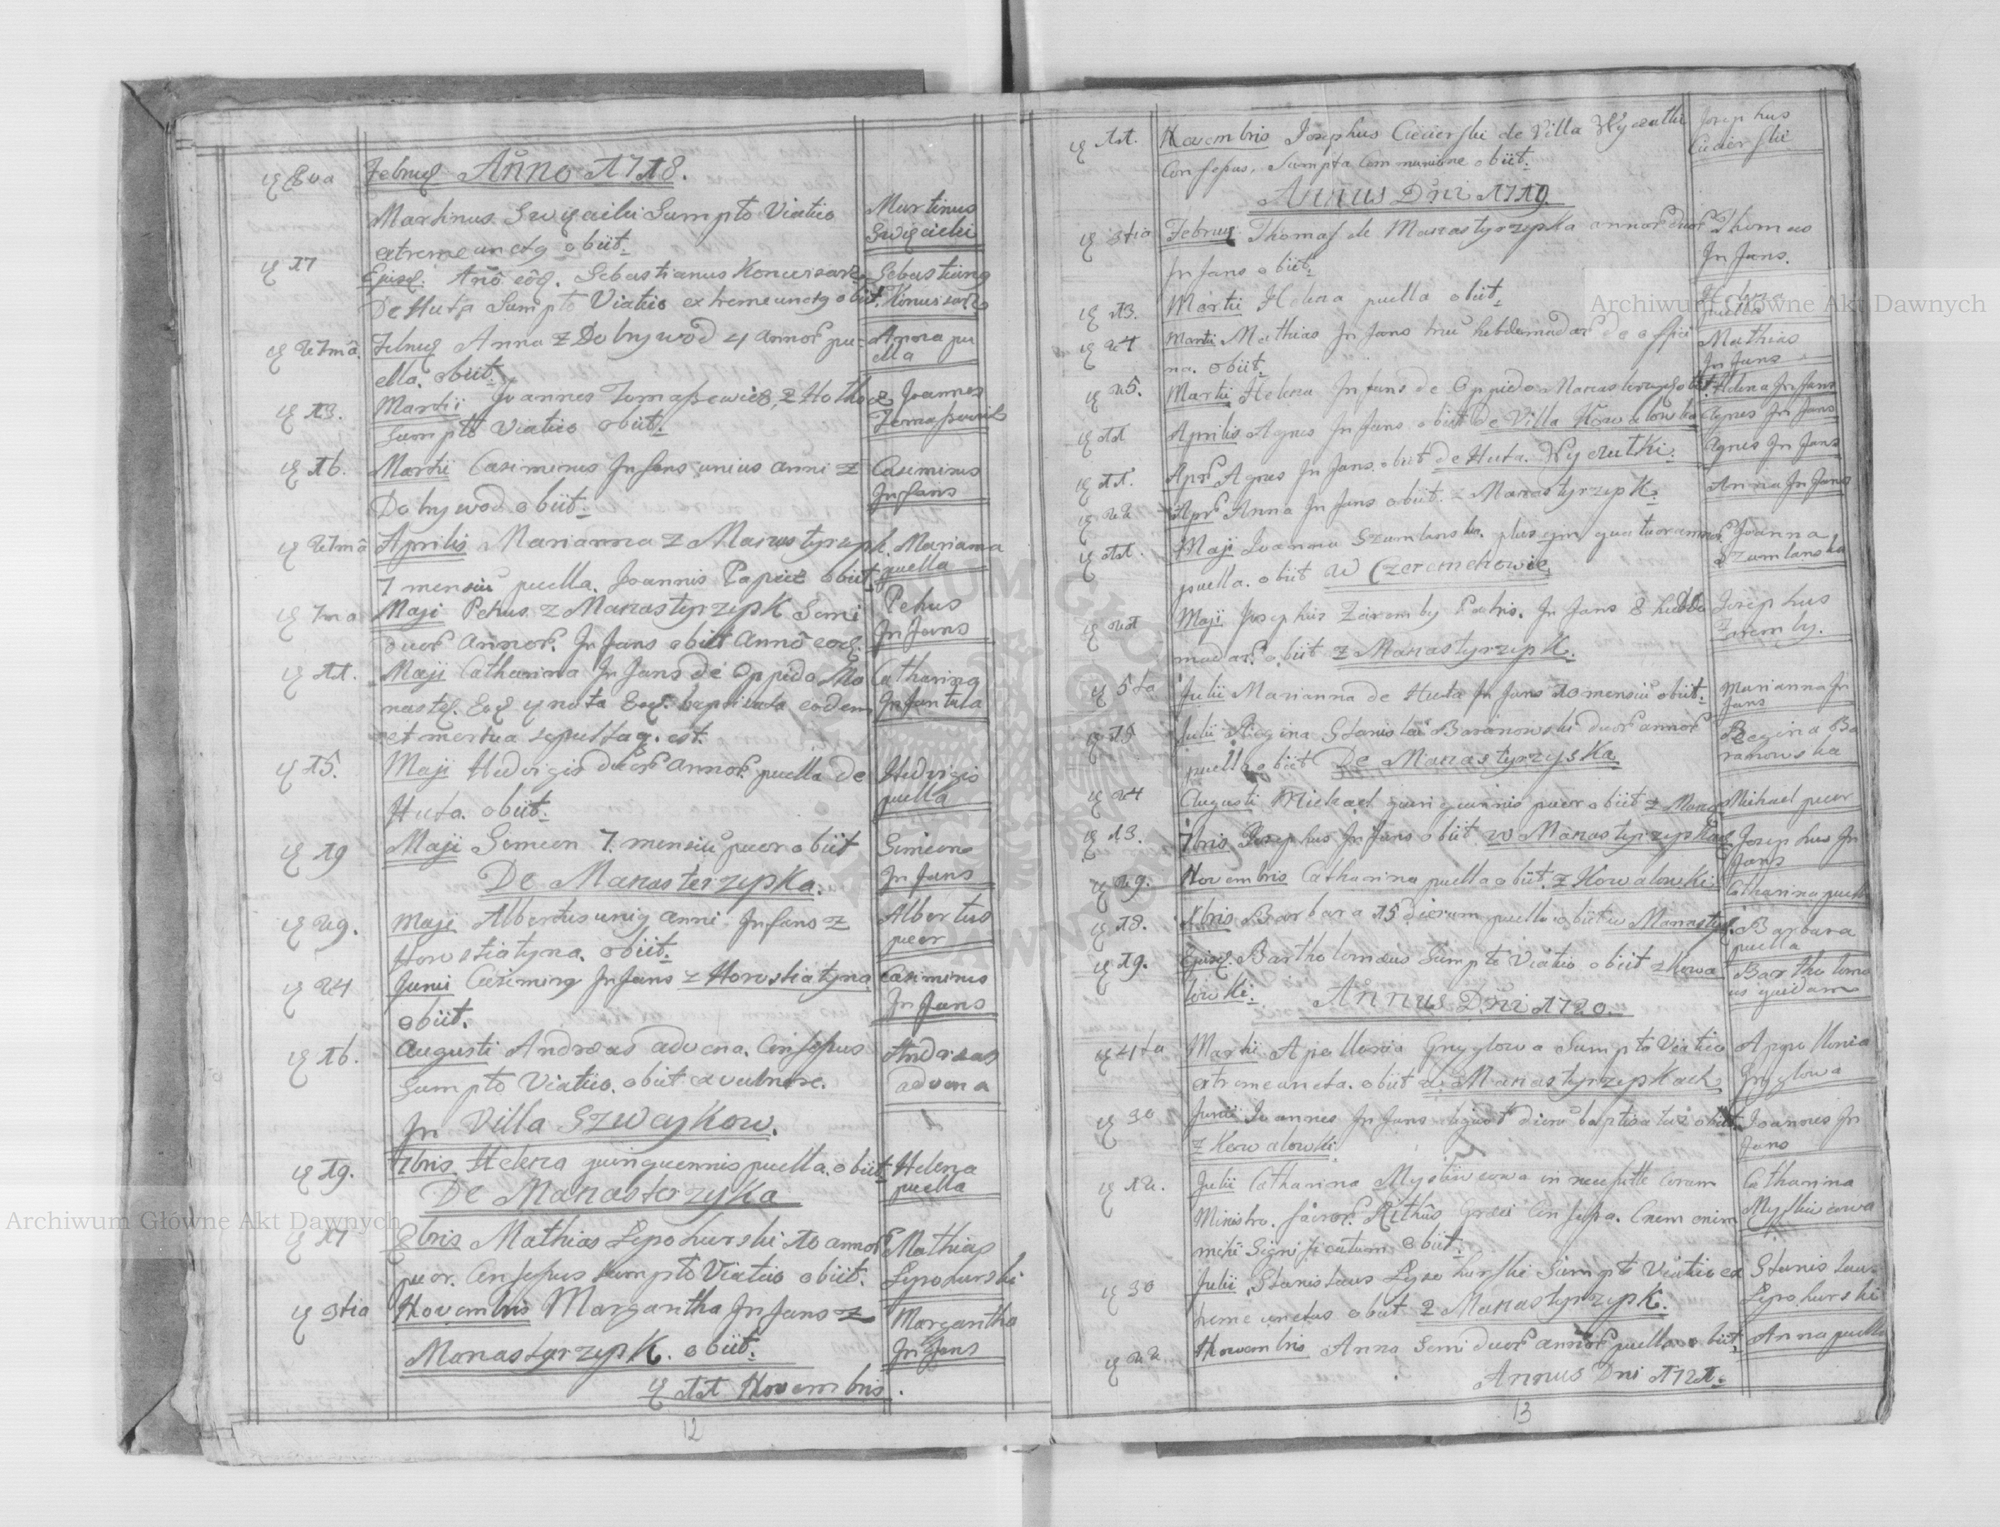 Februar. Anno 1718.
Martinus Swięcicki Sumpto Viatico
Martinus
Swięcicki
extremeunctq obiit.
17
Ejusd. Año eôd. Sebastianus
De Huta Sumpto Viatico extremeunctq obiit.
Sebastianq
Anna z Dobrywod 4 annor. pu-
ella. obiit.
Anna pu
ella
13.
Martii Joannes Tomaszewicz, z
Sumpto Viatico obiit.
Joannes
16.
Martii Casimirus Infans unius anni z
Dobrywod obiit.
Casimirus
Infans
Aprilis Marianna z Manastyrzysk.
7 mensiu puella. Joannis Papiez obiit.
Marianna
puella
7ma
Maji Petrus z Manastyrzysk Semi
duor. Annor. Infans obiit Anno eod.
Petrus
Infans
11.
Maji Catharina Infans de Oppido Mo
nast. Eod. nata Eod. baptisata eodem
et mortua sepultaq. est.
Catharina
Infantula
15.
Maji Hedvigis duor. annor. puella de
Huta. obiit.
Hedvigis
puella
19
Maji Simeon 7. mensiu puer obiit
De Manasterzyska.
Simeon
Infans
29.
Maji Albertus uniq anni Infans z
Horostiatyna. obiit.
Albertus
puer
24
Junii Casimirq Infans z Horostiatyna
obiit.
Casimirus
Infans
16.
Augusti Andreas advena. Confessus
Sumpto Viatico. obiit ex vulnere.
In Villa Szwaykow.
Andreas
advena
19.
7bris Helena quinquennis puella. obiit
De Manasterzyska
Helena
puella
17
8bris Mathias Lysohurski 10 annor.
puer. Confessus sumpto Viatico obiit.
Mathias
Lysohurski
3tia
Novembris Margaritha Infans z
Manastyrzysk. obiit.
Margaritha
Infans
11 Novembris.
12
11.
Novembris Josephus Ciecierski de Villa Wyczułki
Confessus. Sumpta Communione obiit.
Josephus
Ciecierski
Annus Dni 1719.
3tia
Februar. Thomas de Manastyrzyska annor. duor.
Infans obiit.
Thomas
Infans.
13.
Martii Helena puella obiit.
Helena
puella
24
Martii Mathias Infans trium hebdomadar. de offici
na. obiit.
Mathias
Infans
25.
Martii Helena Infans de Oppido Manasterzysk obiit.
Helena Infans
11
Aprilis Agnes Infans obiit de Villa Kowalowka
Agnes Infans
11.
Apr. Agnes Infans obiit de Huta. Wyczułki.
Agnes Infans
22
Apr. Anna Infans obiit. z Manastyrzysk.
Anna Infans
11.
Maji Joanna Szumlanska. plus qm quatuor annor.
puella. obiit w Czeremchowie
Joanna
Szumlanska
21
Maji Josephus Zaremby Patris. Infans 8 hebdo
madar. obiit z Manastyrzysk.
Josephus
Zaremby.
5ta
Julii Marianna de Huta Infans 10 mensiu obiit.
Marianna In
fans
19
Julii Regina Stanislai Baranowski duor. annor.
puella obiit De Manastyrzyska
Regina Ba
ranowska
24
Augusti Michael quinquennis puer obiit z Manas.
Michael puer
13.
7bris Josephus Infans obiit w Manastyrzyskach
Josephus In
fans
29.
Novembris Catharina puella obiit. z Kowalowki
Catharina puella
18.
Xbris Barbara 15 dierum puella obiit w Manastyr.
Barbara
puella
19.
Ejusd. Bartholomæus Sumpto Viatico obiit z Kowa
lowki.
Bartholomæ
us quidam
Annus Dñi 1720.
4ta
Martii Apollonia Gryglowa Sumpto Viatico
extremeuncta. obiit z Manastyrzyskach
Appollonia
Gryglowa
30
Junii Joannes Infans aliquot dieru baptisatus obiit
z Kowalowki
Joannes In
fans
12.
Julii Catharina in necessitte coram
Ministro. Rithûs Græci Confessa.
mihi Significatum obiit.
Catharina
30
Julii Stanislaus Lysohurski Sumpto Viatico ex
tremeunctus obiit z Manastyrzysk.
Stanislaus
Lysohurski
22
Novembris Anna Semi duor. annor. puella obiit.
Anna puella
Annus Dni 1721.
13
Archiwum Główne Akt Dawnych
Archiwum Główne Akt Dawnych